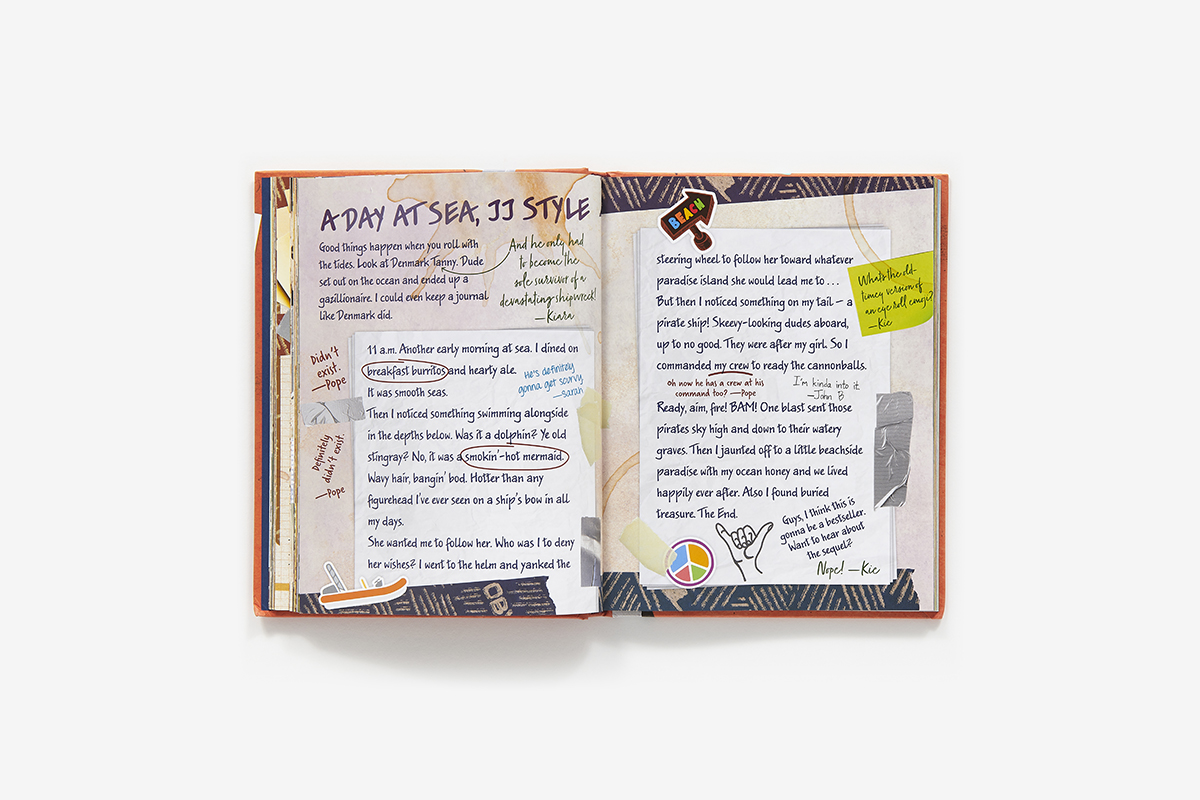 A DAY AT SEA, JJ STYLE
Good things happen when you roll with
the tides. Look at Denmark Tanny. Dude
set out on the ocean and ended up a
gazillionaire. I could even keep a journal
like Denmark did.
And he only had
to become the
sole survivor of a
devastating shipwreck!
—Kiara
11 a.m. Another early morning at sea. I dined on
breakfast burritos and hearty ale.
It was smooth seas.
Didn't
exist.
—Pope
He's definitely
gonna get scurvy.
—Sarah
Then I noticed something swimming alongside
in the depths below. Was it a dolphin? Ye old
stingray? No, it was a smokin'-hot mermaid.
Wavy hair, bangin' bod. Hotter than any
figurehead I've ever seen on a ship's bow in all
my days.
Definitely
didn't exist.
—Pope
She wanted me to follow her. Who was I to deny
her wishes? I went to the helm and yanked the
BEACH
steering wheel to follow her toward whatever
paradise island she would lead me to . . .
But then I noticed something on my tail — a
pirate ship! Skeevy-looking dudes aboard,
up to no good. They were after my girl. So I
commanded my crew to ready the cannonballs.
What's the old-
timey version of
an eye roll emoji?
—Kie
Oh now he has a crew at his
command too? —Pope
I'm kinda into it.
—John B
Ready, aim, fire! BAM! One blast sent those
pirates sky high and down to their watery
graves. Then I jaunted off to a little beachside
paradise with my ocean honey and we lived
happily ever after. Also I found buried
treasure. The End.
Guys, I think this is
gonna be a bestseller.
Want to hear about
the sequel?
Nope! —Kie